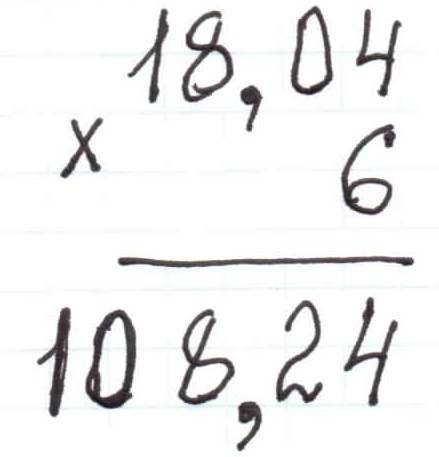 18,04
× 6
108,24